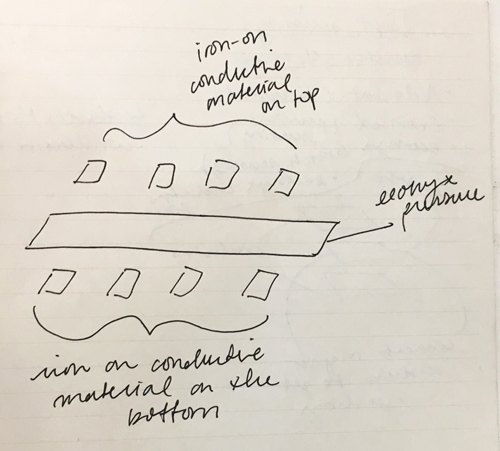 iron-on
conductive
material
on top
eeonyx
pressure
iron on conductive
material on the
bottom